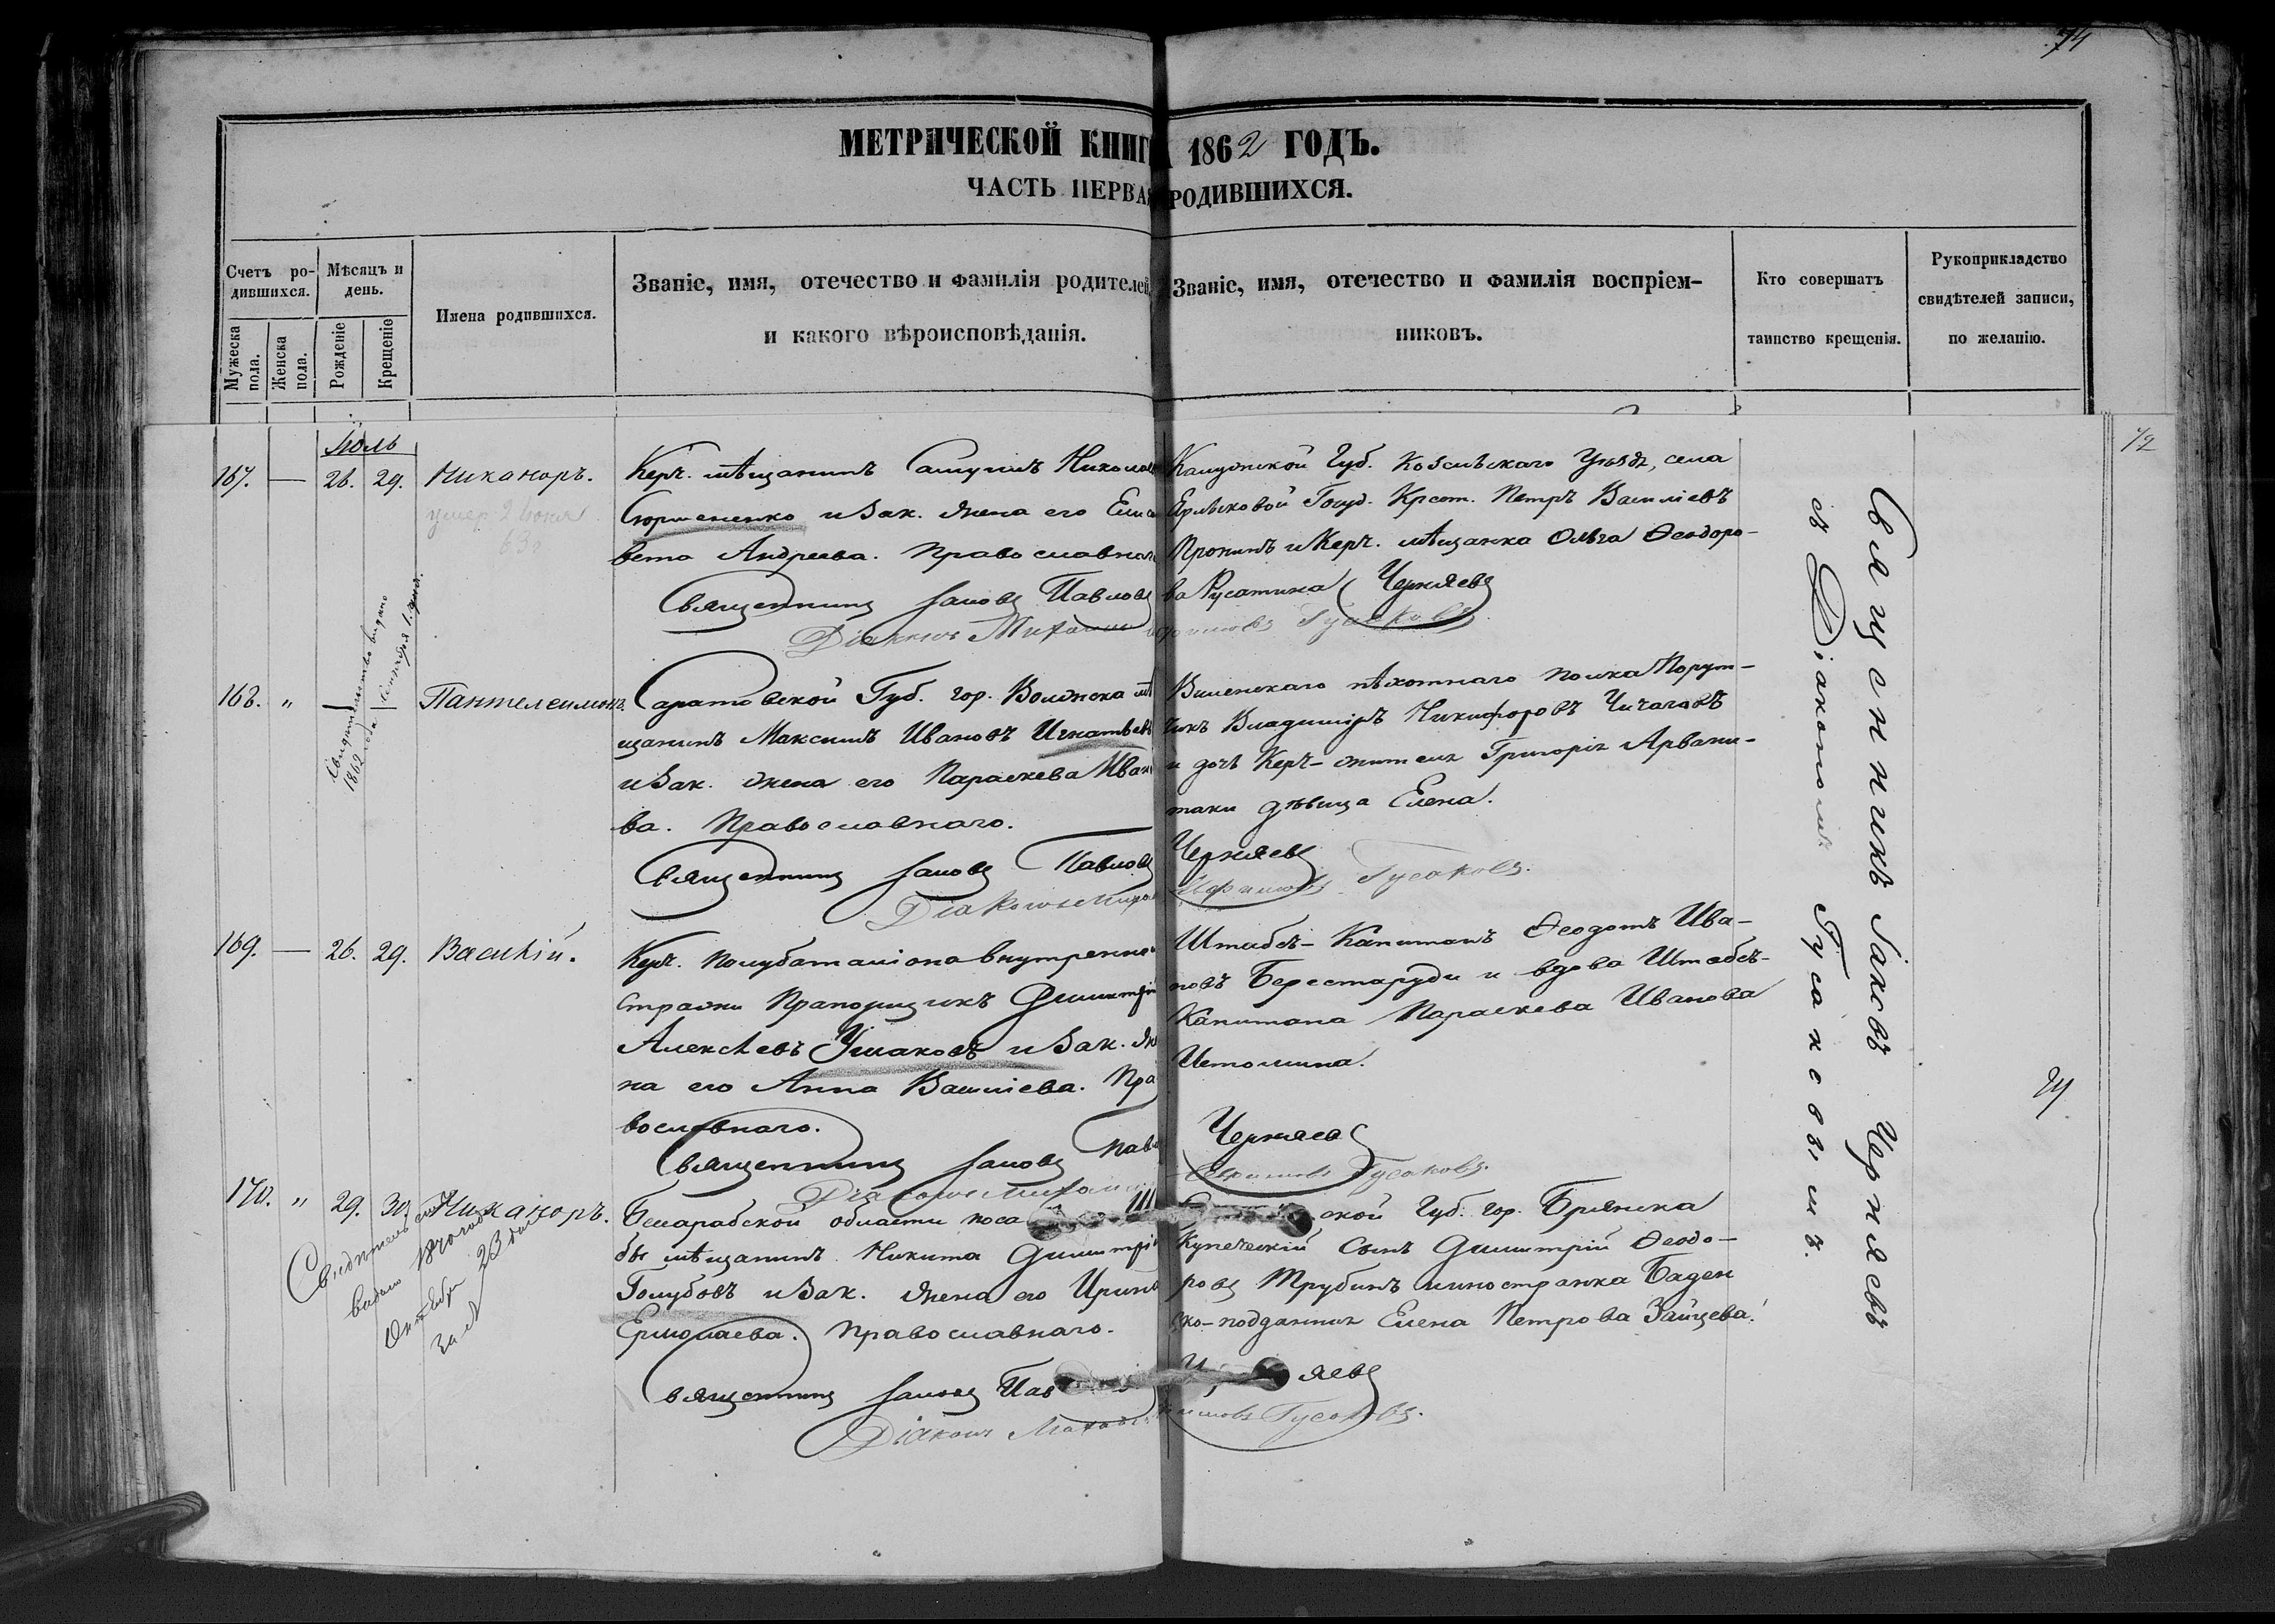 74
МЕТРИЧЕСКОЙ КНИГИ 1862 ГОДЪ.
ЧАСТЬ ПЕРВАЯ РОДИВШИХСЯ.
Счетъ ро-
дившихся.
Мужеска пола.
Женска пола.
Мѣсяцъ и
день.
Рожденіе
Крещеніе
Имена родившихся.
Званіе, имя, отечество и фамилія родителей,
и какого вѣроисповѣданія.
Званіе, имя, отечество и фамилія воспріем-
никовъ.
Кто совершатъ
таинство крещенія.
Рукоприкладство
свидѣтелей записи,
по желанію.
72
Іюль
167. — 26. 29. Никаноръ.
умер 2 Іюня
63
Керч. мѣщанинъ Самуилъ Никола
и Зак. жена его Елиса
вета Андреева. Православнаго
Священникъ Іаковъ Павловъ Черняевъ
Діаконъ Михаилъ Гусаковъ
Калужской Губ. Козельскаго Уѣзда, села
Госуд. Крест. Петръ Василіевъ
Пронинъ и Керч. мѣщанка Ольга Ѳеодоро-
ва Русатина
168. " — — Пантелеимонъ.
Свидѣтельство выдано
1862 года Сентября 1. дня.
Саратовской Губ. гор. Волжска мѣ
щанинъ Максимъ Ивановъ Игнатьевъ
и Зак. жена его Параскева Ивано
ва. Православнаго.
Священникъ Іаковъ Павловъ Черняевъ
Діаконъ Михаилъ Гусаковъ.
Виленскаго пѣхотнаго полка Порут-
чикъ Владиміръ Никифоровъ Чичаговъ
и дочь Керч- жителя Григорія Арвани-
таки дѣвица Елена.
169. — 26. 29. Василій.
Керч. Полубаталіона внутренней
стражи Прапорщикъ Димитрій
Алексѣевъ Ушаковъ и Зак. же
на его Анна Василіева. Пра
вославнаго.
Священникъ Іаковъ Павловъ Черняевъ
Діаконъ Михаилъ Гусаковъ.
Штабсъ-Капитанъ Ѳеодотъ Ива-
новъ Берестаруди и вдова Штабсъ-
Капитана Параскева Иванова
Истомина.
170. " 29. 30. Никаноръ.
Октября 23 дня
за №
Бессарабской области поса
бы мѣщанинъ Никита Димитрі
Голубовъ и Зак. жена его Ирина
Ермолаева. Православнаго.
Священникъ Іаковъ Пав яевъ
Діаконъ Гусаковъ.
ской Губ. гор. Брянска
Купеческій Сынъ Димитрій Ѳеодо-
ровъ Трубинъ и иностранка Баден
ско-подданная Елена Петрова Зайцева.
Священникъ Іаковъ Черняевъ
съ Діакономъ Гусаковымъ.